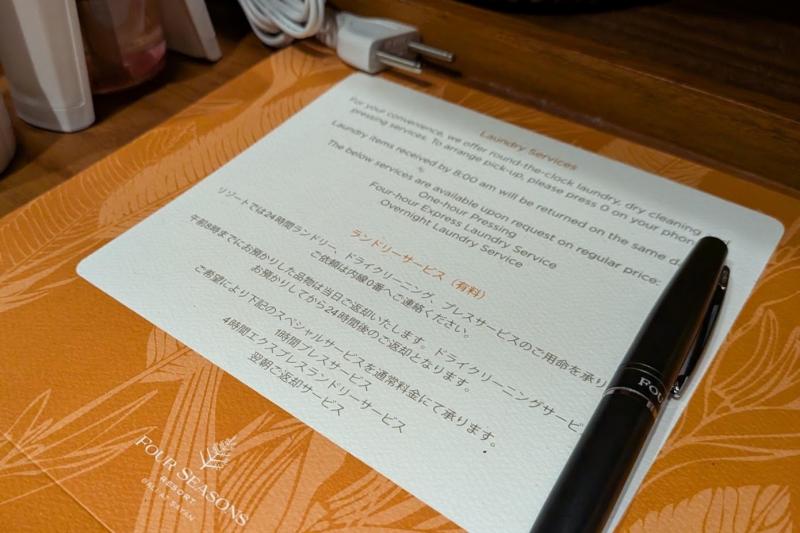 Laundry Services
For your convenience, we offer round-the-clock laundry, dry cleaning
pressing services. To arrange pick-up, please press 0 on your phon
Laundry items received by 8:00 am will be returned on the same d
The below services are available upon request on regular price:
One-hour Pressing
Four-hour Express Laundry Service
Overnight Laundry Service
ランドリーサービス（有料）
リゾートでは24時間ランドリー、ドライクリーニング、プレスサービスのご用命を承り
ご依頼は内線0番へご連絡ください。
午前8時までにお預かりした品物は当日ご返却いたします。ドライクリーニングサービ
お預かりしてから24時間後のご返却となります。
ご希望により下記のスペシャルサービスを通常料金にて承ります。
1時間プレスサービス
4時間エクスプレスランドリーサービス
翌朝ご返却サービス
FOUR SEASONS
RESORT
BALI AT SAYAN
FOU